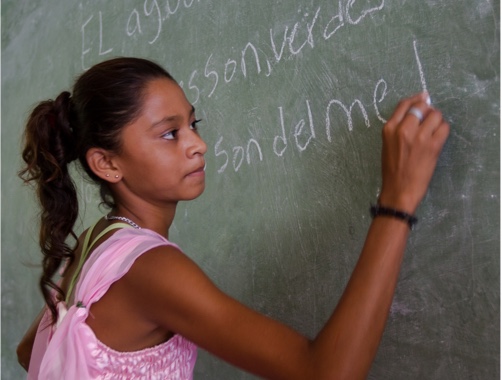 EL agua
son verdes
son del me